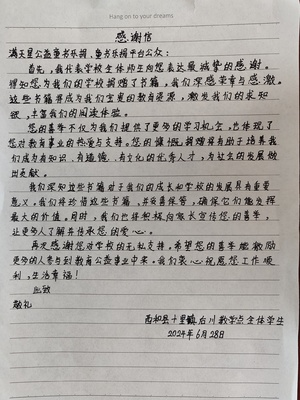 Hang on to your dreams
感谢信
满天星公益童书乐捐、童书乐捐平台公众:
首先,我代表学校全体师生向您表达最诚挚的感谢。
得知您为我们的学校捐赠了书籍,我们深感荣幸与感激。
这些书籍将成为我们宝贵的教育资源,激发我们的求知
欲,丰富我们的阅读体验。
您的善举不仅为我们提供了更多的学习机会,也体现了
您对教育事业的热爱与支持。您的慷慨捐赠将有助于培养我
们成为有知识、有道德、有文化的优秀人才,为社会的发展做
出贡献。
我们深知这些书籍对于我们的成长和学校的发展具有重要
意义。我们将珍惜这些书籍,并妥善保管,确保它们能发挥
最大的价值。同时,我们也将积极向家长宣传您的善举,
让更多人了解并传承您的爱心。
再次感谢您对学校的无私支持。希望您的善举能激励
更多的人参与到教育公益事业中来。我们衷心祝愿您工作顺
利,生活幸福!
此致
敬礼
西和县十里镇右川教学点全体学生
2024年6月28日